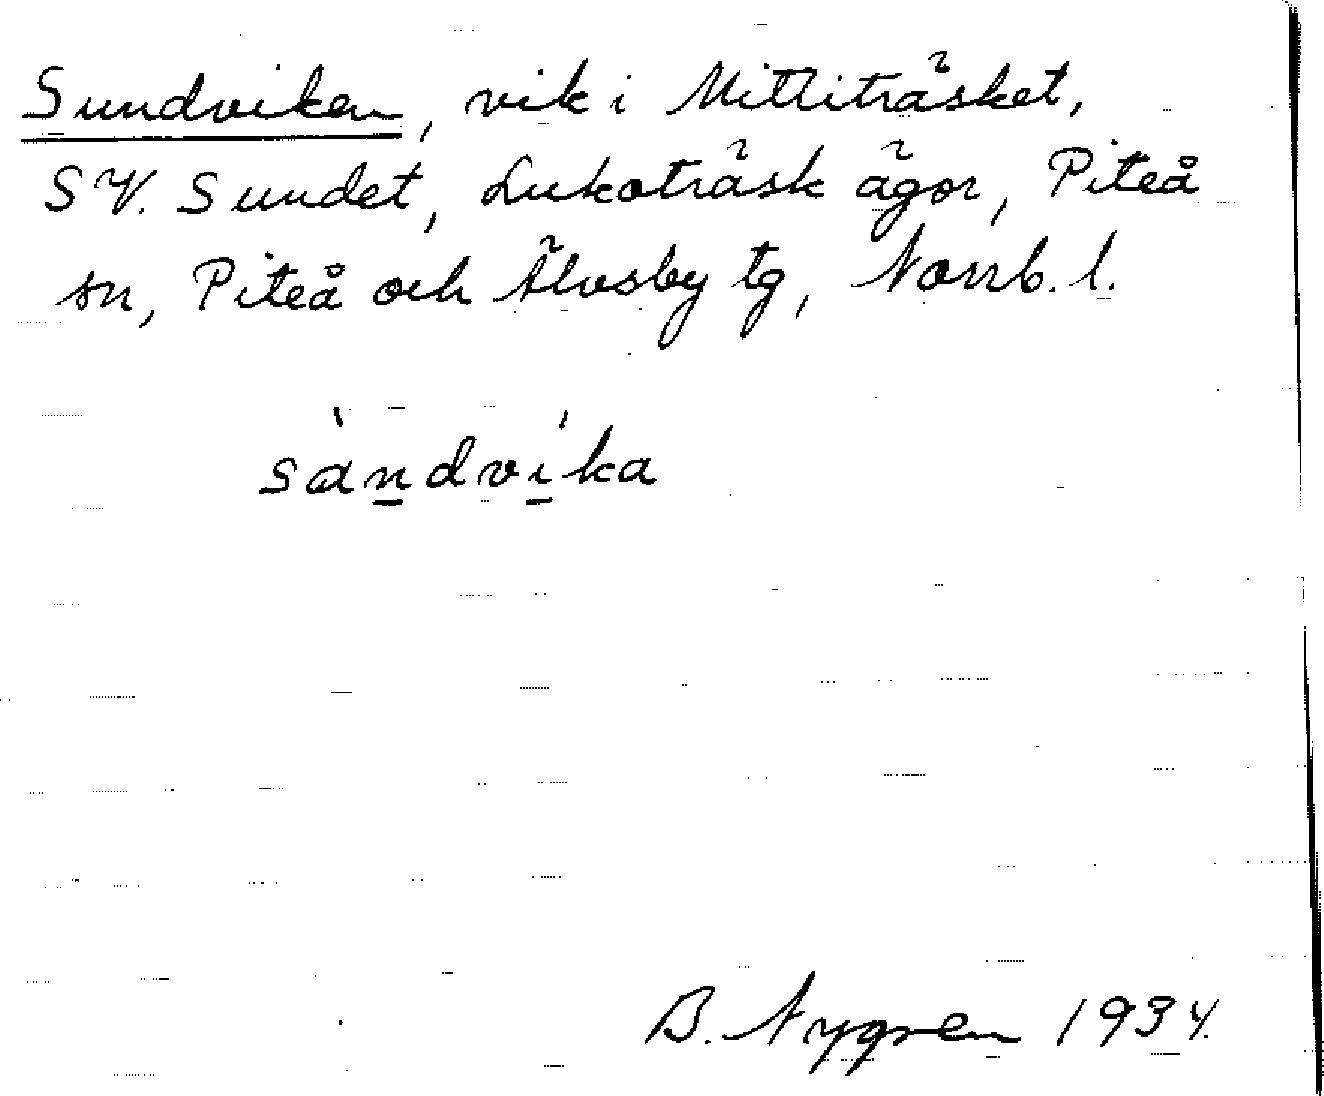 Sundviken, vik i Mittiträsket,
SV. Sundet, Lukoträsk ägor, Piteå
sn, Piteå och Älvsby tg, Norrb. l.
sàndvíka
B. Nygren 1934.